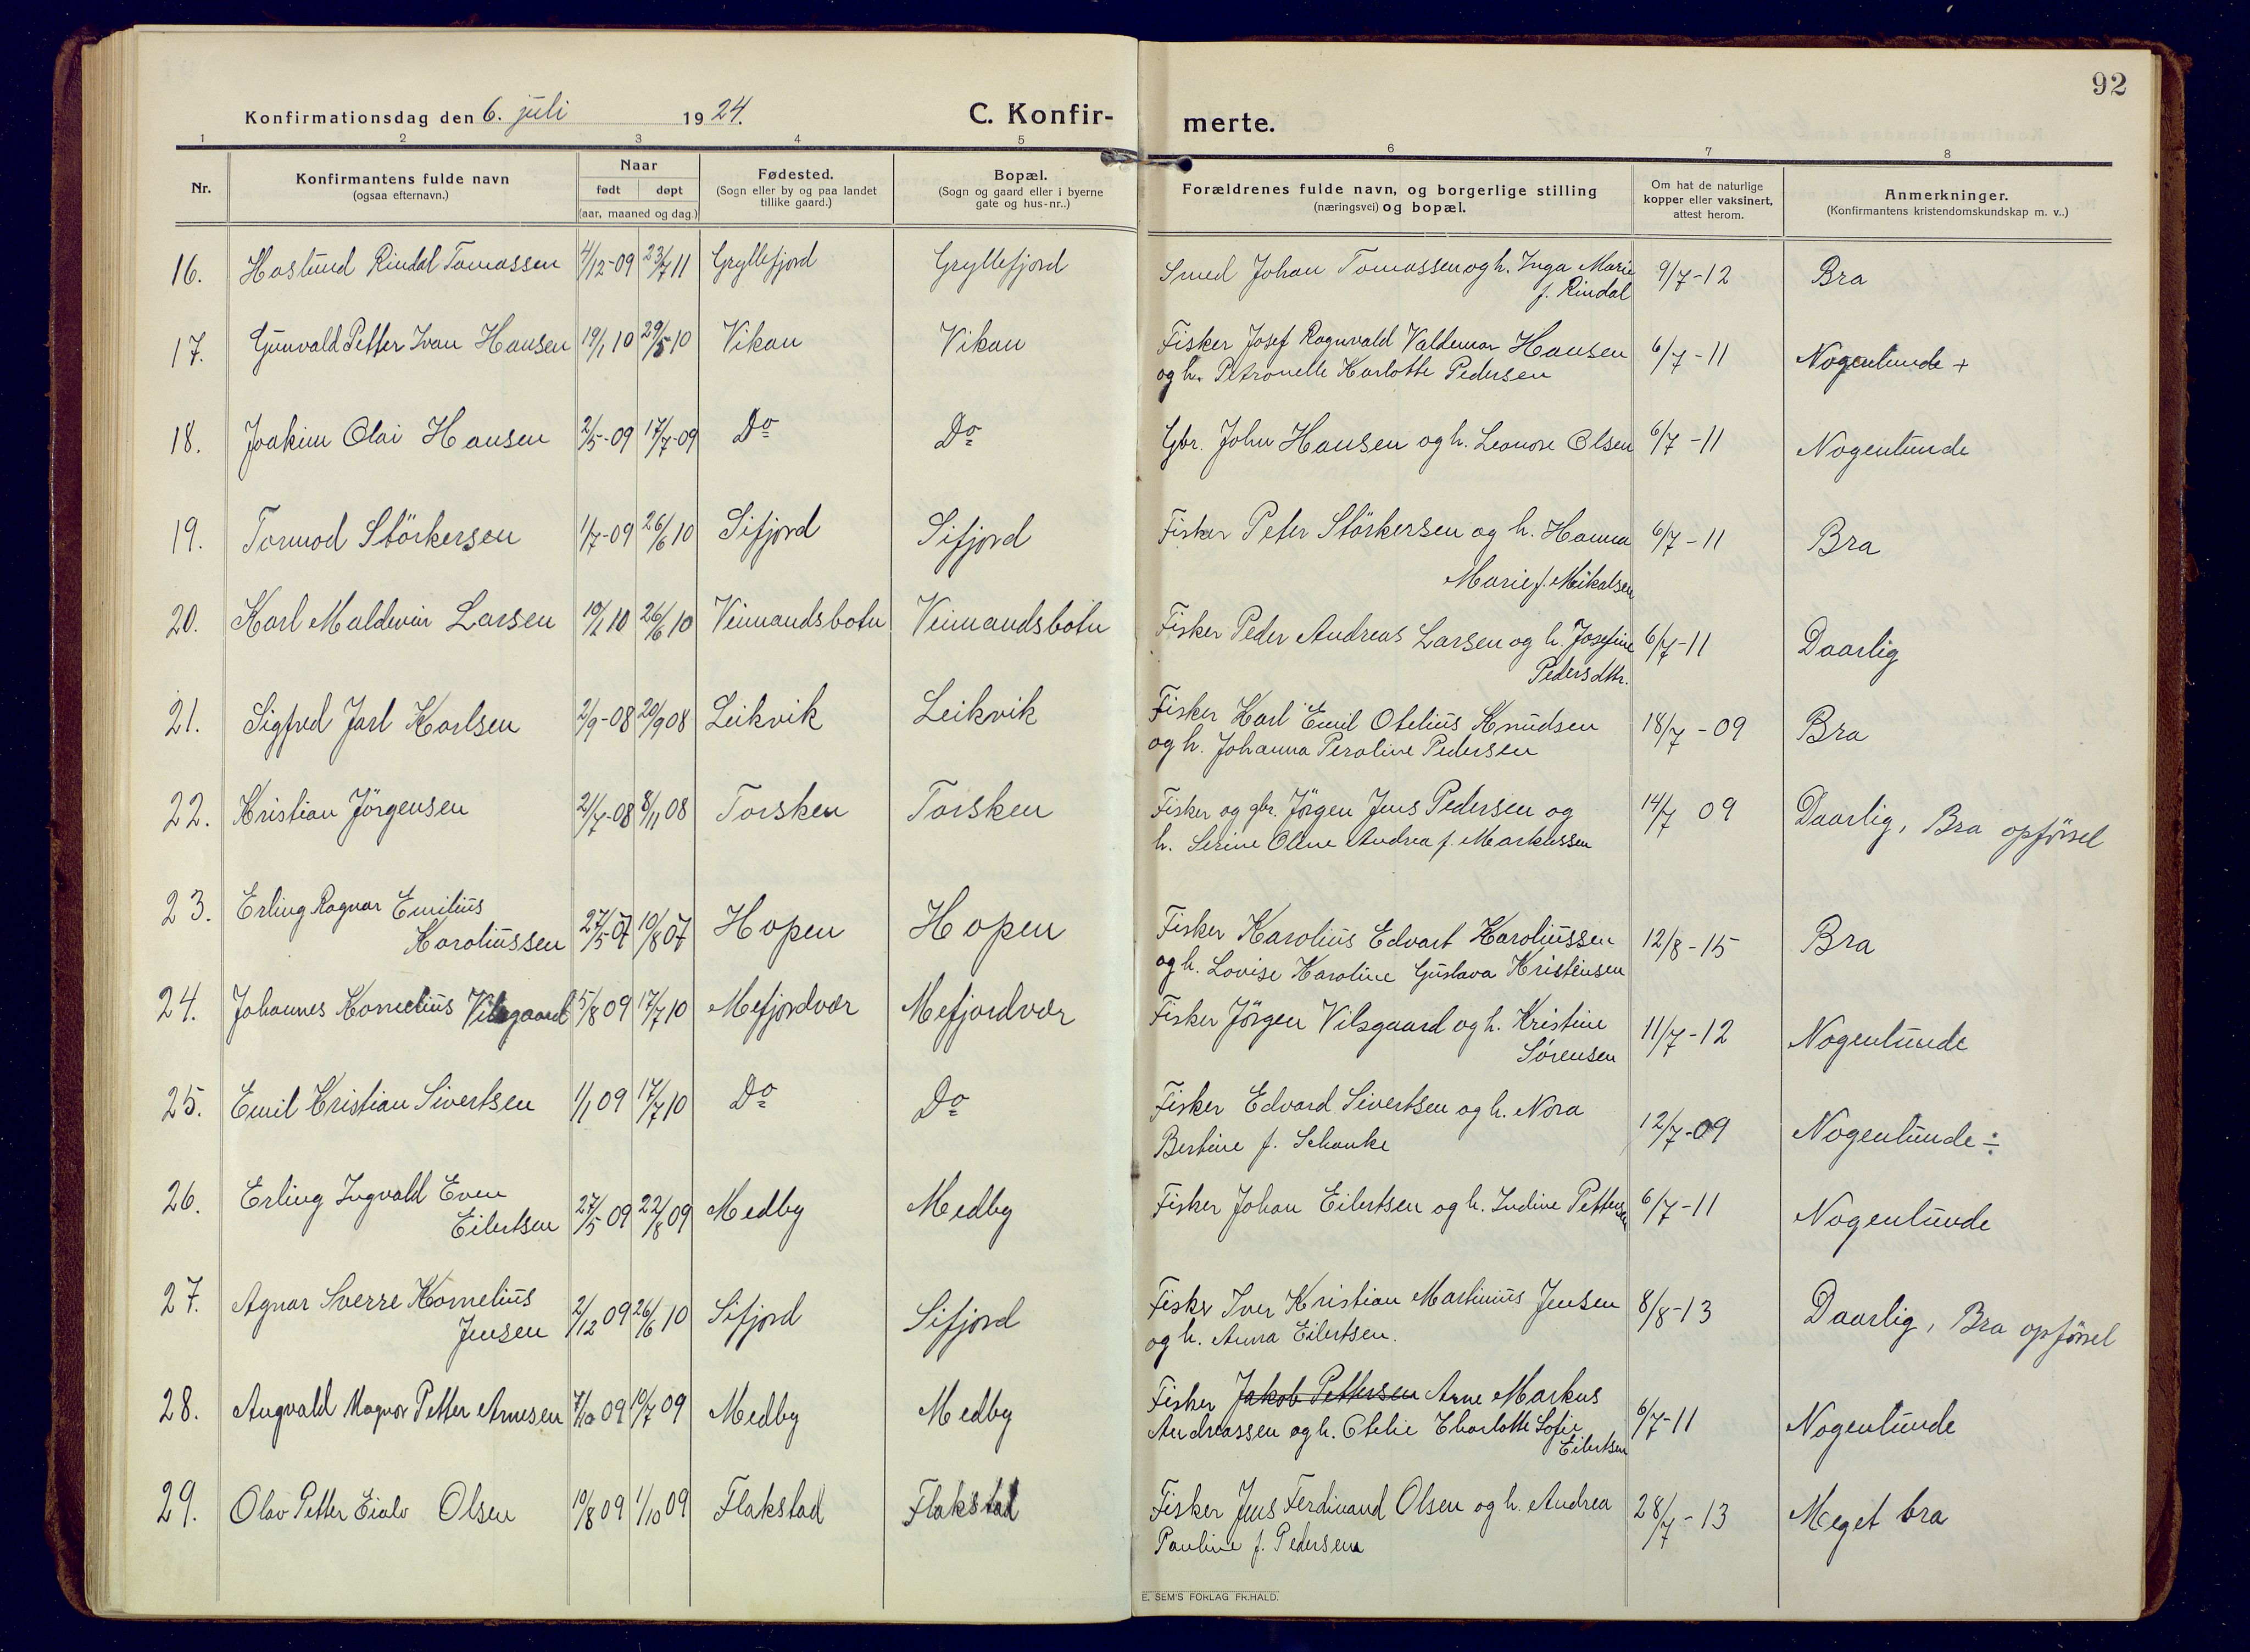 92
Konfirmationsdag den 6. juli 1924.
C. Konfirmerte.
1 2 3 4 5 6 7 8
Nr.
Konfirmantens fulde navn
(ogsaa efternavn.)
Naar
født døpt
(aar, maaned og dag.)
Fødested.
(Sogn eller by og paa landet
tillike gaard.)
Bopæl.
(Sogn og gaard eller i byerne
gate og hus-nr..)
Forældrenes fulde navn, og borgerlige stilling
(næringsvei) og bopæl.
Om hat de naturlige
kopper eller vaksinert,
attest herom.
Anmerkninger.
(Konfirmantens kristendomskundskap m. v..)
16. Haslund Rindal Tomassen 4/12-09 23/7 11 Gryllefjord Gryllefjord Smed Johan Tomassen og h. Inga Marie 9/7-12 Bra
f. Rindal
17. Gunvald Petter Ivan Hansen 19/1 10 29/5 10 Vikan Vikan Fisker Josef Ragnvald Valdemar Hansen 6/7-11 Nogenlunde +
og h. Petronelle Karlotte Pedersen
18. Joakim Olai Hansen 2/5-09 17/7-09 Do Do Gbr. John Hansen og h. Leonore Olsen 6/7-11 Nogenlunde
19. Tormod Störkersen 1/7-09 26/6 10 Sifjord Sifjord Fisker Peter Störkersen og h. Hanna 6/7-11 Bra
Marie f. Mikalsen
20. Karl Maldevin Larsen 10/1 10 26/6 10 Veimandsbotn Veimandsbotn Fisker Peder Andreas Larsen og h. Josefine 6/7-11 Daarlig
Pedersdtr.
21. Sigfred Jarl Karlsen 2/9-08 20/9 08 Leikvik Leikvik Fisker Karl Emil Otelius Knudsen 18/7-09 Bra
og h. Johanna Peroline Pedersen
22. Kristian Jörgensen 21/7-08 8/11 08 Torsken Torsken Fisker og gbr. Jörgen Jens Pedersen og 14/7 09 Daarlig, Bra opförsel
h. Serine Oline Andrea f. Markussen
23. Erling Ragnar Emilius
Karoliussen 27/5 07 10/8 07 Hopen Hopen Fisker Karolius Edvart Karoliussen 12/8-15 Bra
og h. Lovise Karoline Gustava Kristensen
24. Johannes Kornelius Vilsgaard 5/8 09 17/7 10 Mefjordvær Mefjordvær Fisker Jörgen Vilsgaard og h. Kristine 11/7-12 Nogenlunde
Sørensen
25. Emil Kristian Sivertsen 1/1 09 17/7 10 Do Do Fisker Edvard Sivertsen og h. Nora 12/7-09 Nogenlunde ÷
Bertine f. Schanke
26. Erling Ingvald Even
Eilertsen 27/5 09 22/8 09 Medby Medby Fisker Johan Eilertsen og h. Indine Pettersen 6/7-11 Nogenlunde
27. Agnar Sverre Kornelius
Jensen 2/12 09 26/6 10 Sifjord Sifjord Fisker Iver Kristian Martinius Jensen 8/8-13 Daarlig, Bra opførsel
og h. Anna Eilertsen.
28. Angvald Magnor Petter Arnesen 09 10/7 09 Medby Medby Fisker Jakob Pettersen Arne Markus 6/7-11 Nogenlunde
Andreassen og h. Otelie Charlotte Sofie
Eilertsen
29. Olav Petter Eialv Olsen 10/8 09 1/10 09 Flakstad Flakstad Fisker Jens Ferdinand Olsen og h. Andrea 28/7-13 Meget bra
Pauline f. Pedersen
E. SEM'S FORLAG FR.HALD.